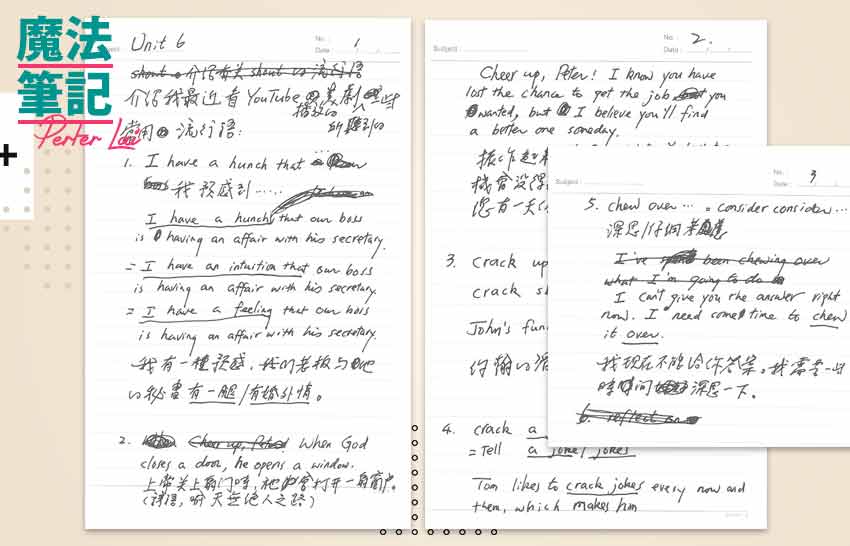 魔法
筆記
Porter Lai
Unit 6
No.: 1
Date:
介紹我最近看YouTube
播放的美劇
所聽到的
常用的流行語:
1. I have a hunch that ...
我預感到......
I have a hunch that our boss
is having an affair with his secretary.
= I have an intuition that our boss
is having an affair with his secretary.
= I have a feeling that our boss
is having an affair with his secretary.
我有一種預感,我的老板与他
的秘書有一腿/有婚外情。
2. When God
closes a door, he opens a window.
上帝关上扇门時,他会打开一扇窗户。
(諺語,喻天無絕人之路)
Subject:
No.: 2.
Date:
Cheer up, Peter! I know you have
lost the chance to get the job you
wanted, but I believe you'll find
a better one someday.
振作起來
您有一天
3. crack up
crack
John's fun
4. crack a
= Tell a joke / jokes
Tom likes to crack jokes every now and
then, which makes him
Subject:
No.: 3
Date:
5. chew over ... = consider consider...
深思/仔細考慮
I've been chewing over
what I'm going to do
I can't give you the answer right
now. I need some time to chew
it over.
我现在不能给你答案。我需要一些
時间深思一下。
6. reflect on